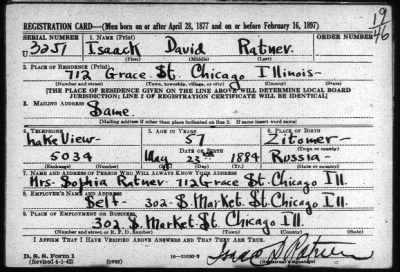 REGISTRATION CARD—(Men born on or after April 28, 1877 and on or before February 16, 1897)
19/46
SERIAL NUMBER 1. NAME (Print)
U 3251 Isaack David Ratner.
(First) (Middle) (Last)
2. PLACE OF RESIDENCE (Print)
712 Grace. St. Chicago Illinois-
(Number and street) (Town, township, village, or city) (County) (State)
[THE PLACE OF RESIDENCE GIVEN ON THE LINE ABOVE WILL DETERMINE LOCAL BOARD
JURISDICTION; LINE 2 OF REGISTRATION CERTIFICATE WILL BE IDENTICAL]
3. MAILING ADDRESS
Same.
[Mailing address if other than place indicated on line 2. If same insert word same]
4. TELEPHONE 5. AGE IN YEARS 6. PLACE OF BIRTH
LakeView- 57 Zitomer-
DATE OF BIRTH (Town or county)
5034 May 23 1884 Russia-
(Exchange) (Number) (Mo.) (Day) (Yr.) (State or country)
7. NAME AND ADDRESS OF PERSON WHO WILL ALWAYS KNOW YOUR ADDRESS
Mrs. Sophia Ratner. 712 Grace St. Chicago Ill.
8. EMPLOYER'S NAME AND ADDRESS
Self- 302- S. Market. St. Chicago Ill.
9. PLACE OF EMPLOYMENT OR BUSINESS
302 S. Market. St. Chicago Ill.
(Number and street or R. F. D. number) (Town) (County) (State)
I AFFIRM THAT I HAVE VERIFIED ABOVE ANSWERS AND THAT THEY ARE TRUE.
D. S. S. Form 1
(Revised 4-1-42) (over)
(Registrant's signature)